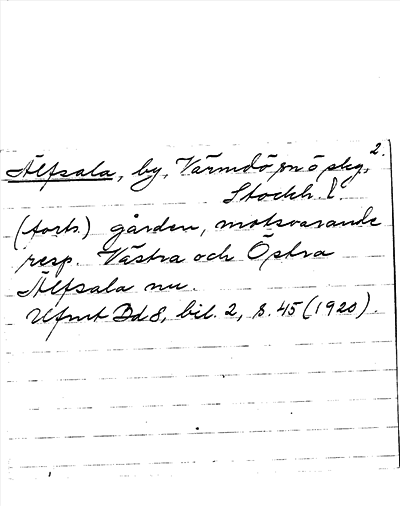 2.
Älfsala, by, Värmdö sn ö skg,
Stockh. l.
(forts.) gården, motsvarande
resp. Västra och Östra
Älfsala nu.
Ufmt Bd 8, bil. 2, s. 45 (1920).